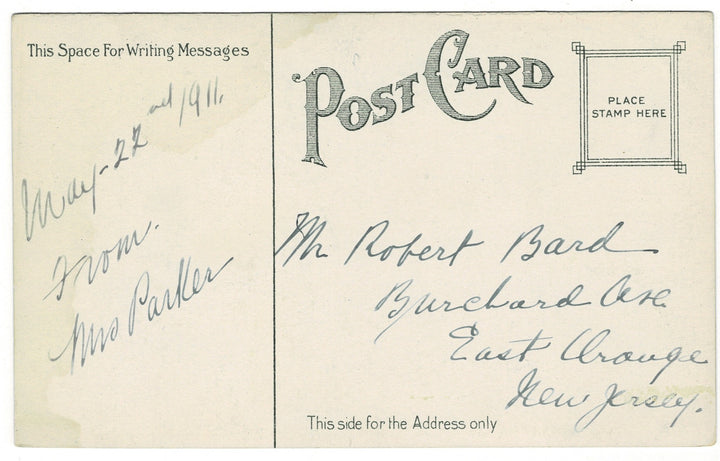 This Space For Writing Messages
May-22nd 1911.
From.
Mrs Parker
POST CARD
PLACE
STAMP HERE
Mr Robert Bard
Burchard Ave.
East Orange
New Jersey.
This side for the Address only